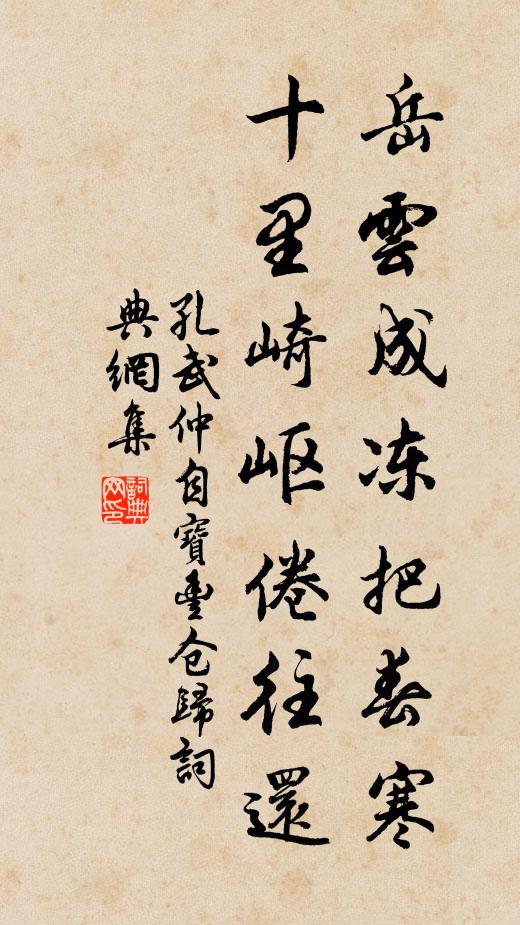 岳雲成冻把春寒
十里崎岖倦往還
孔武仲自寶豐仓歸詞
典網集
詞典网印